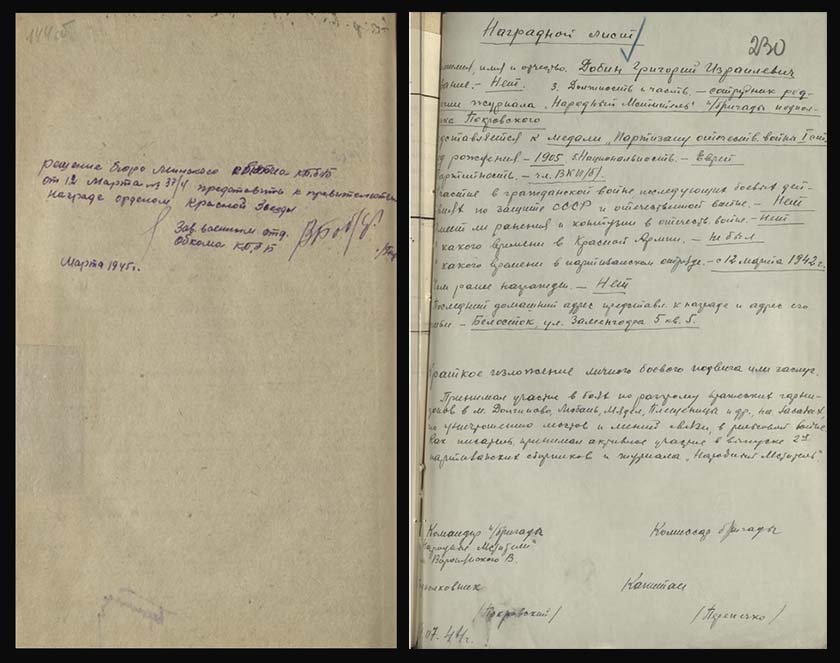 144об
решение бюро Минского обкома КП/б/Б
от 12 Марта № 37/4 представить к правительствен
награде орденом Красной Звезды
Зав. военным отд.
Обкома КП/б/Б
Марта 1945г.
Наградной лист
230
имя и отчество. Добин Григорий Израилевич
звание. — Нет. 3. Должность и часть. — сотрудник ред-
журнала „Народный Мститель" п/бригады
Покровского
представляется к медали „Партизану отечеств. войны I ст.
год рождения — 1905 5. Национальность. — Еврей
партийность. — чл. ВКП/б/.
участие в гражданской войне последующих боевых дей-
ствиях по защите СССР и отечественной войне. — Нет
имеет ли ранения и контузии в отечеств. войне. — Нет
с какого времени в Красной Армии. — не был
с какого времени в партизанском отряде. — с 12 марта 1942 г.
чем ранее награжден. — Нет
Последний домашний адрес представл. к награде и адрес его
семьи — Белосток, ул. Заменгофа 5 кв. 5.
Краткое изложение личного боевого подвига или заслуг.
Принимал участие в боях по разгрому вражеских гарни-
зонов в м. Долгиново, Любань, Мядел, Плещеницы и др., на засадах,
по уничтожению мостов и линий связи, в рельсовой войне.
Как писатель, принимал активное участие в выпуске 2х
партизанских сборников и журнала „Народный Мститель".
Командир п/бригады
Комиссар бригады
„Народные Мстители"
Воронянского В.
Капитан
/Покровский/
07.44г.